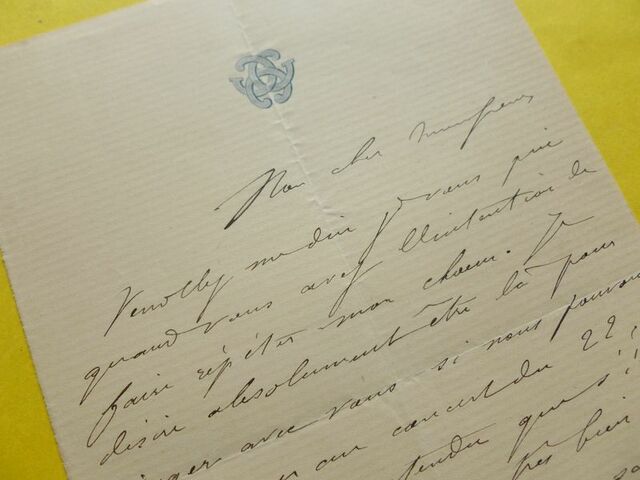 Mon cher monsieur
Veuillez me dire je vous prie
quand vous avez l'intention de
faire répéter mon chœur. Je
désire absolument être là pour
avec vous si nous pouvons
au concert du 22,
que s'i
très bien